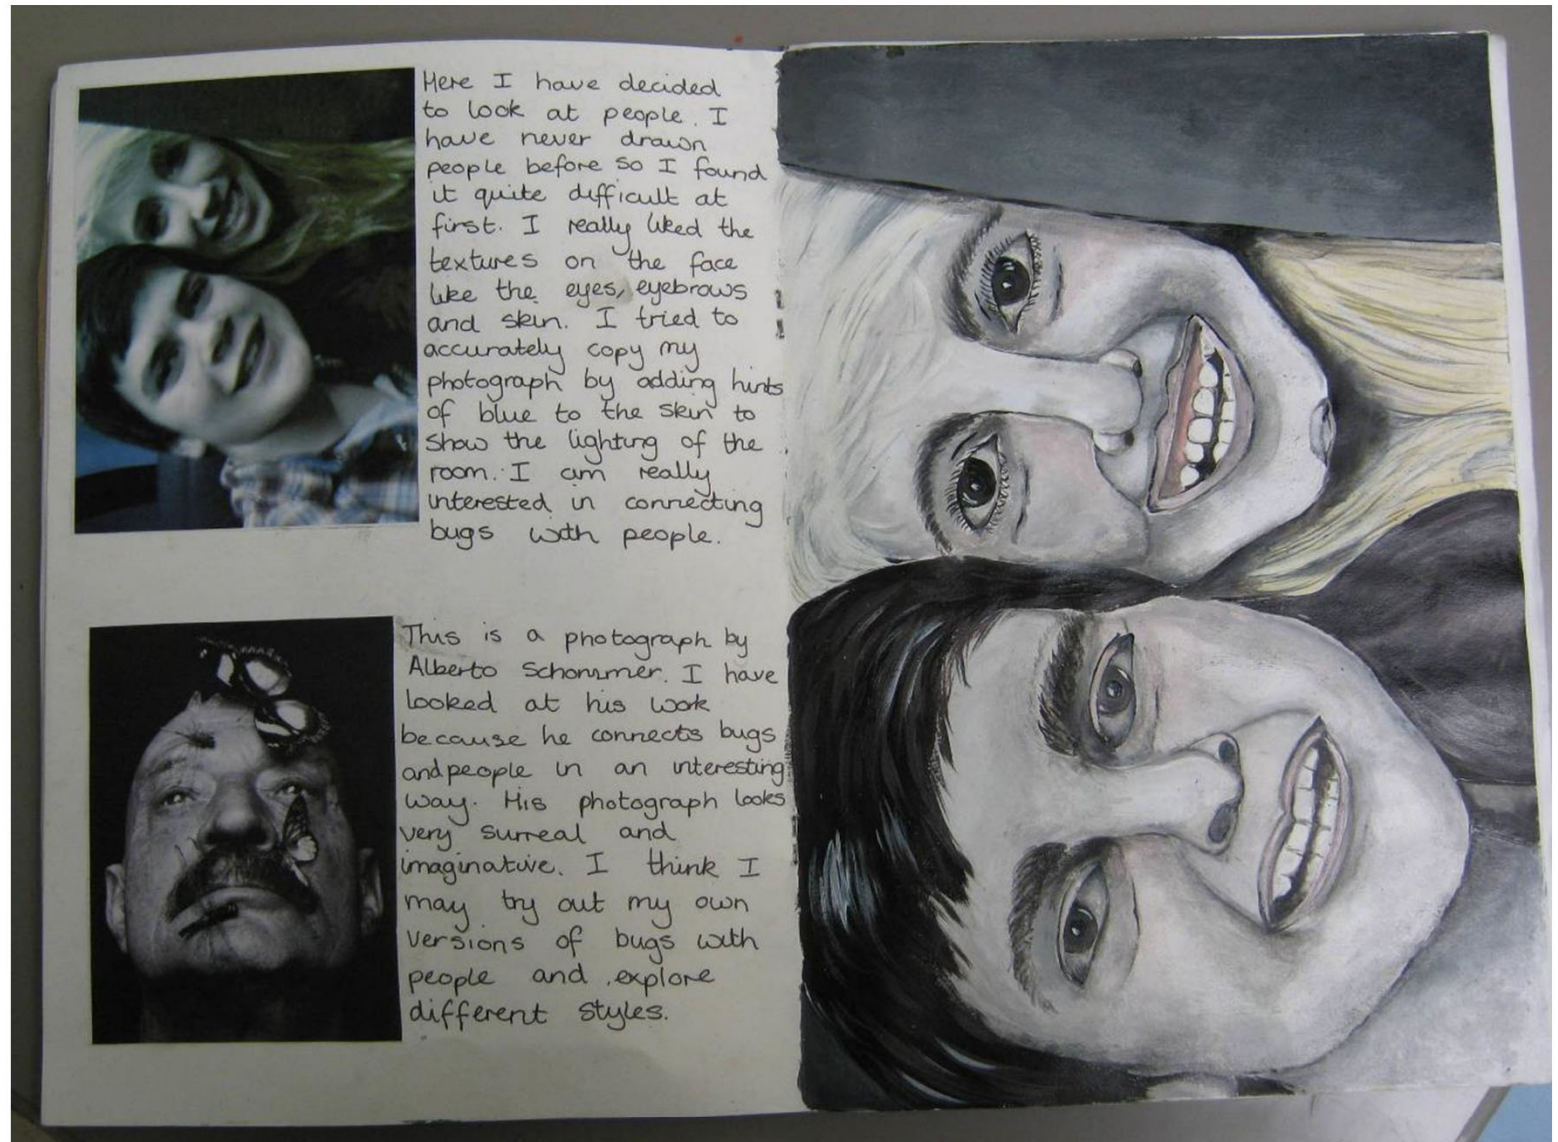 Here I have decided
to look at people. I
have never drawn
people before so I found
it quite difficult at
first. I really liked the
textures on the face
like the eyes, eyebrows
and skin. I tried to
accurately copy my
photograph by adding hints
of blue to the skin to
show the lighting of the
room. I am really
interested in connecting
bugs with people.
This is a photograph by
Alberto Schonmmer. I have
looked at his work
because he connects bugs
and people in an interesting
way. His photograph looks
very surreal and
imaginative. I think I
may try out my own
versions of bugs with
people and explore
different styles.